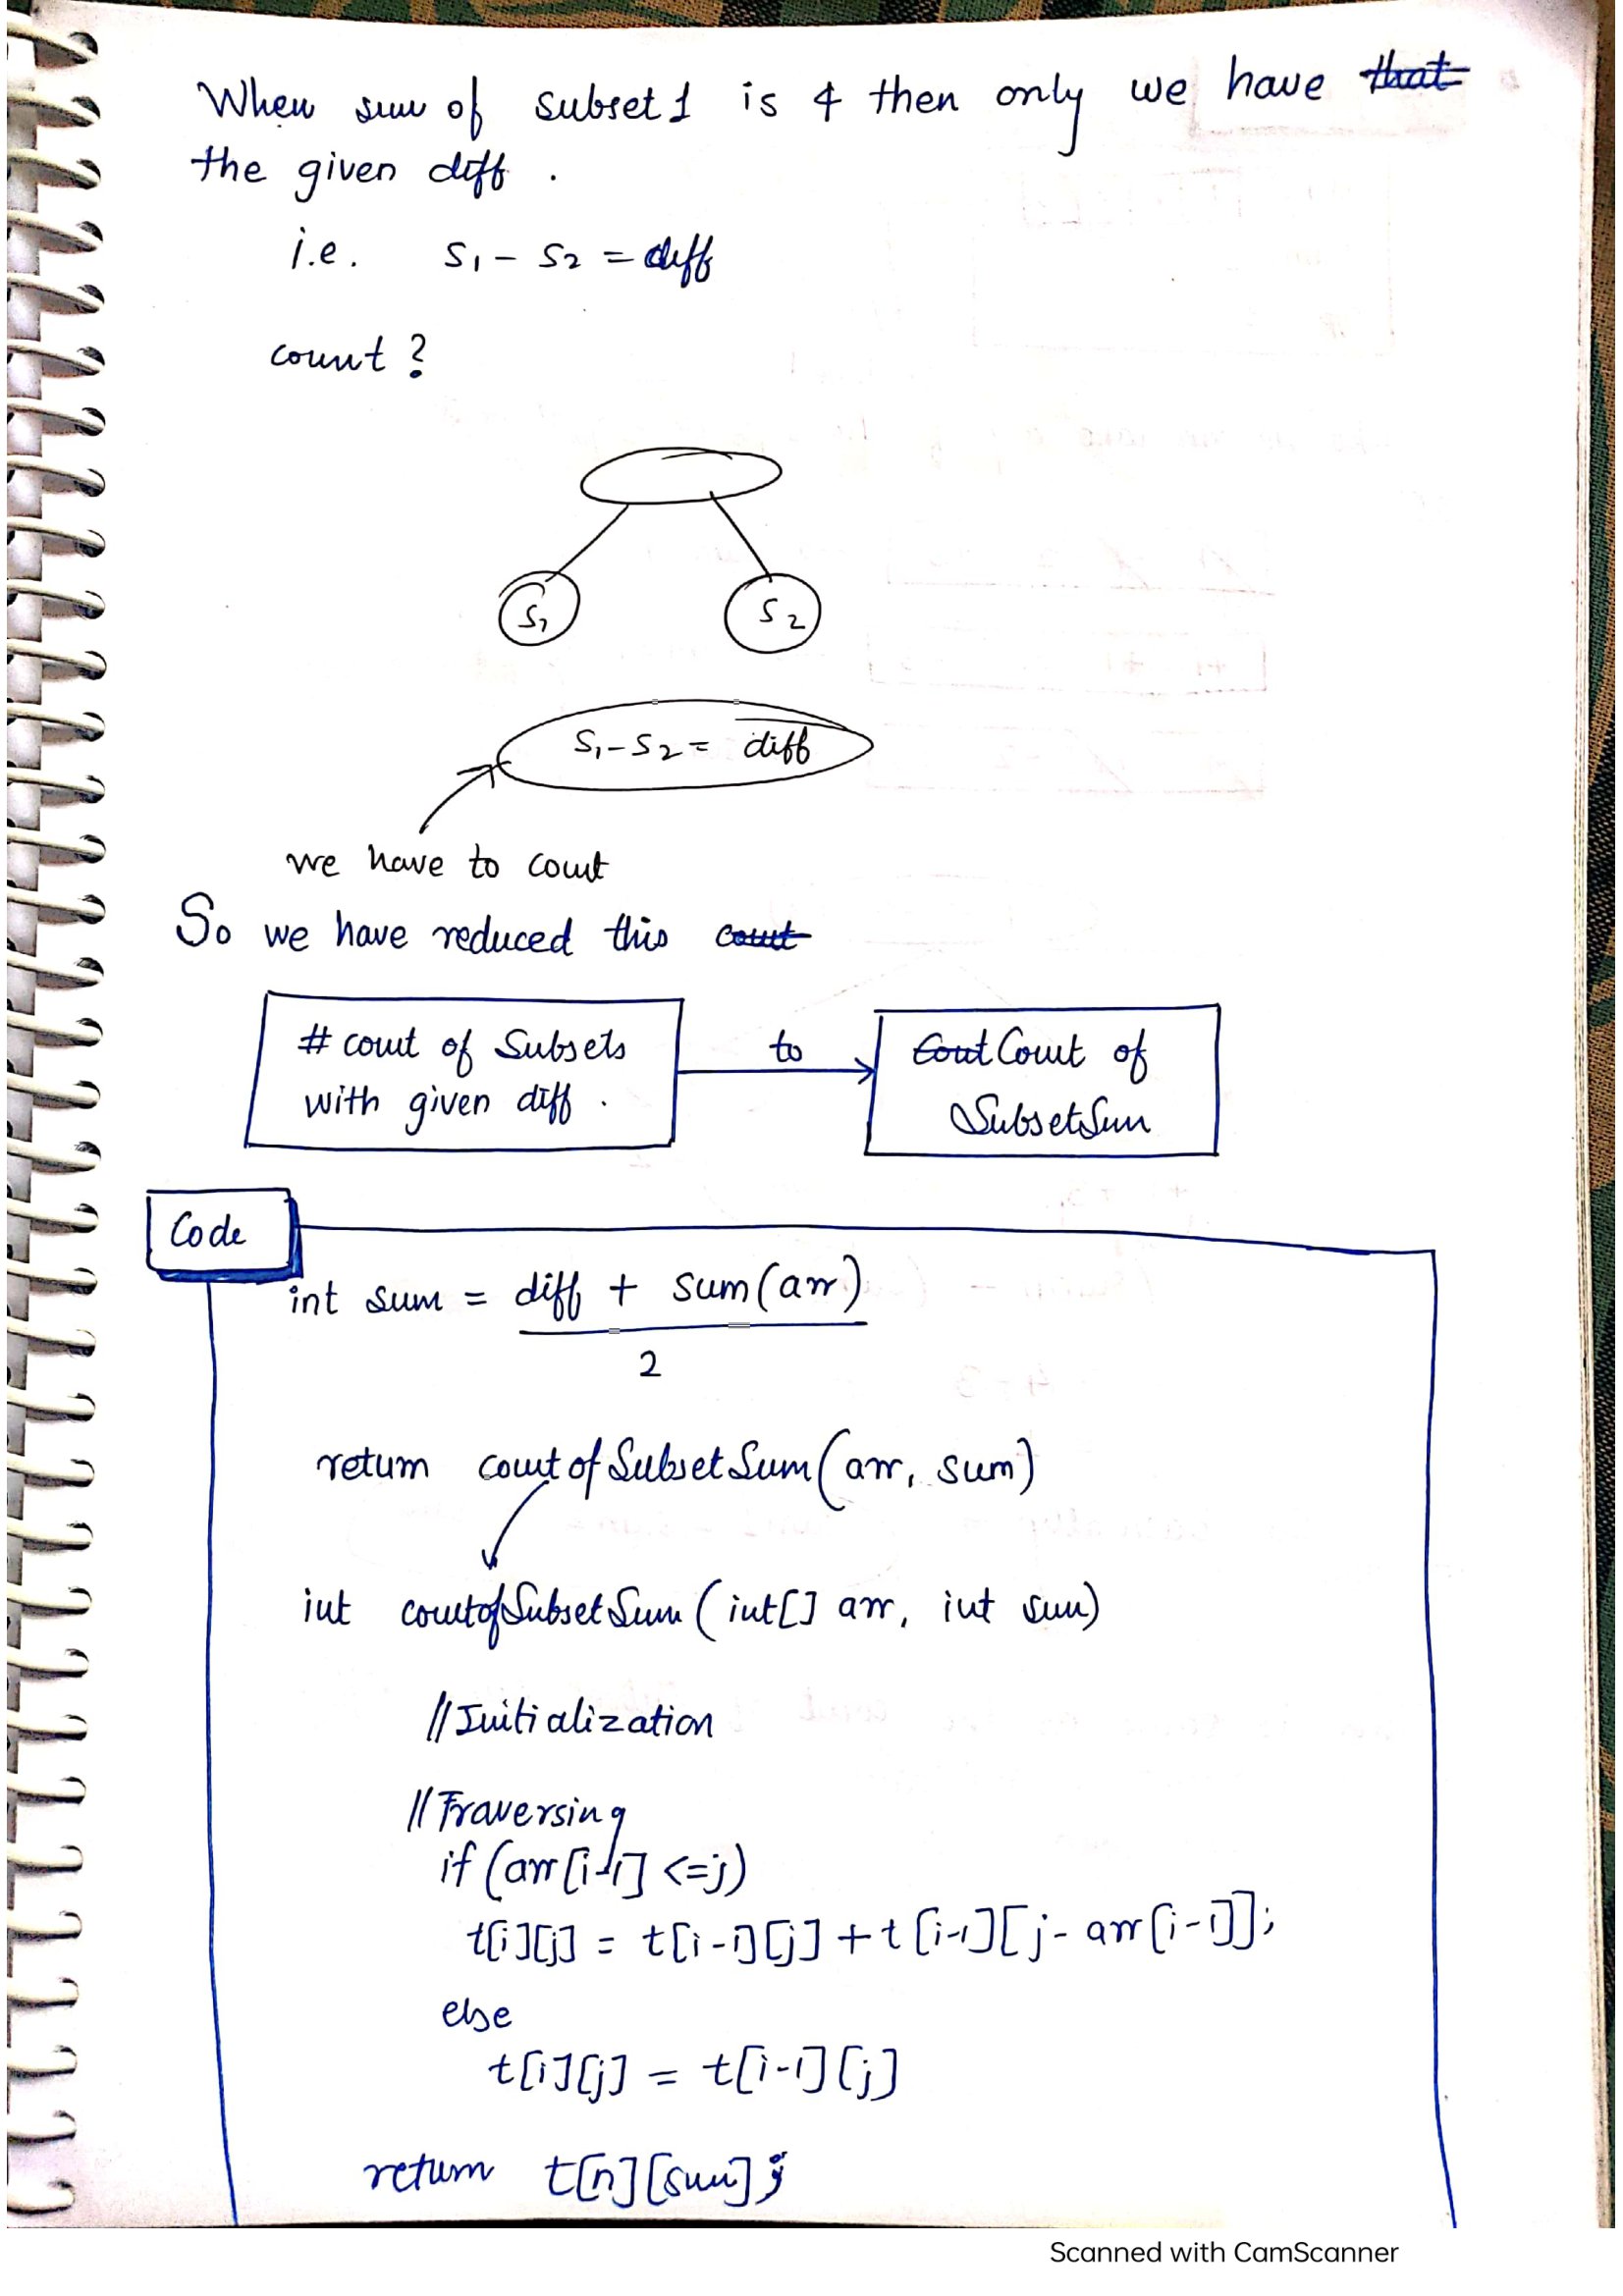 When sum of subset 1 is 4 then only we have that
the given diff .
i.e. S1 - S2 = diff
count ?
S1
S2
S1 - S2 = diff
we have to count
So we have reduced this count
# count of Subsets
with given diff .
to
Cout Count of
SubsetSum
Code
int sum = diff + sum(arr)
2
return countofSubsetSum(arr, sum)
int countofSubsetSum (int[] arr, int sum)
//Initialization
//Traversing
if (arr[i-1] <=j)
t[i][j] = t[i-1][j] + t[i-1][j- arr[i-1]];
else
t[i][j] = t[i-1][j]
return t[n][sum];
Scanned with CamScanner